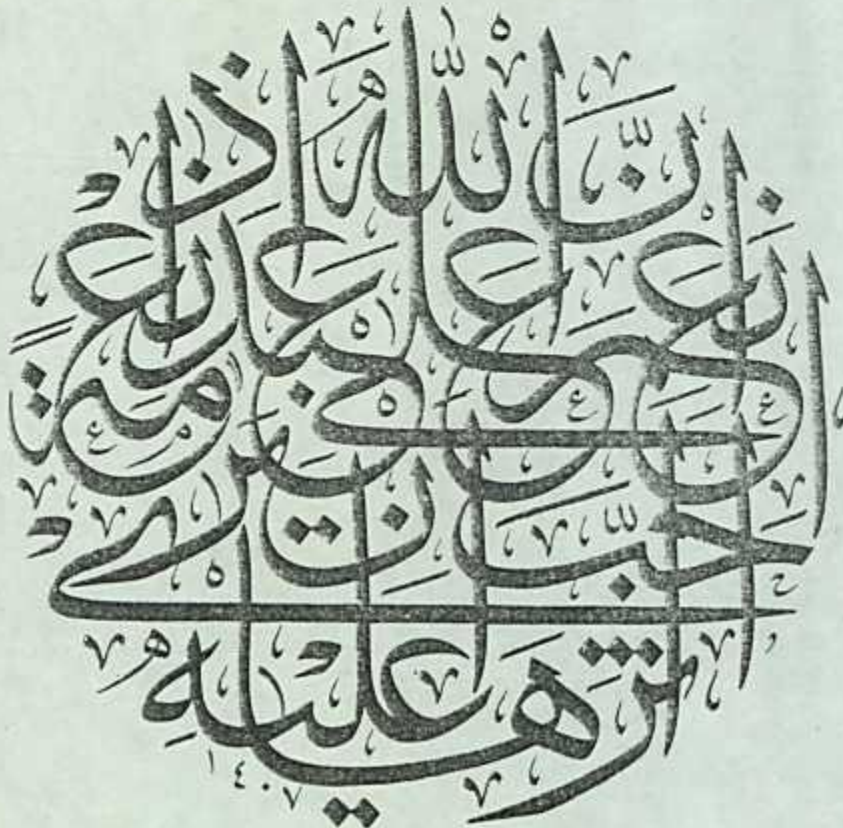 انّ الله اذا
انعم على عبد نعمة
احبّ ان ترى
اثرها عليه
١٤٠٧